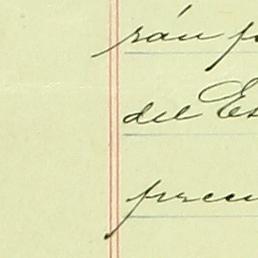 rán f
del Es
frecu